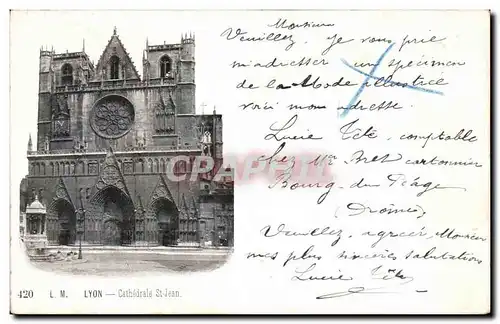 Monsieur
Veuillez, je vous prie
m'adresser un spécimen
de la Mode illustrée
voici mon adresse.
Lucie Tété, comptable
chez Mr Bret cartonnier
Bourg-du-Péage
(Drôme)
Veuillez, agréer, Monsieur
mes plus sincères salutations
Lucie Tété
420 L. M. LYON — Cathédrale St-Jean.